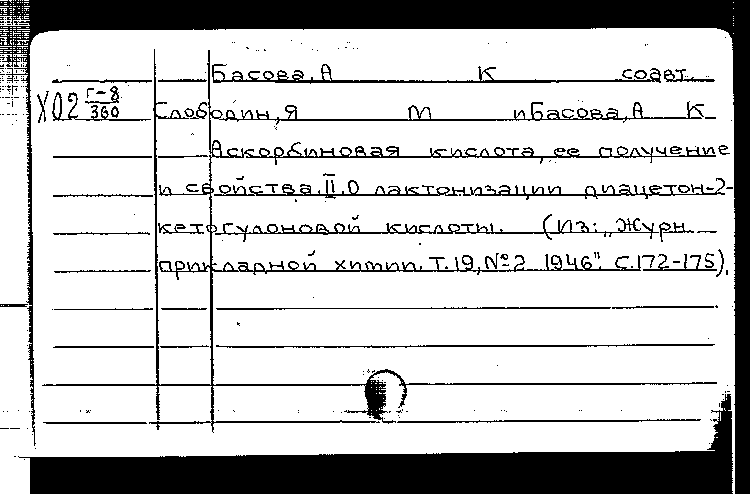 Басова, А К соавт.
Х02 Г-8/360
Слободин, Я М и Басова, А К
Аскорбиновая кислота, ее получение
и свойства. II. О лактонизации диацетон-2-
кетогулоновой кислоты. (Из: „Журн.
прикладной химии. Т. 19, № 2 1946". С. 172-175).